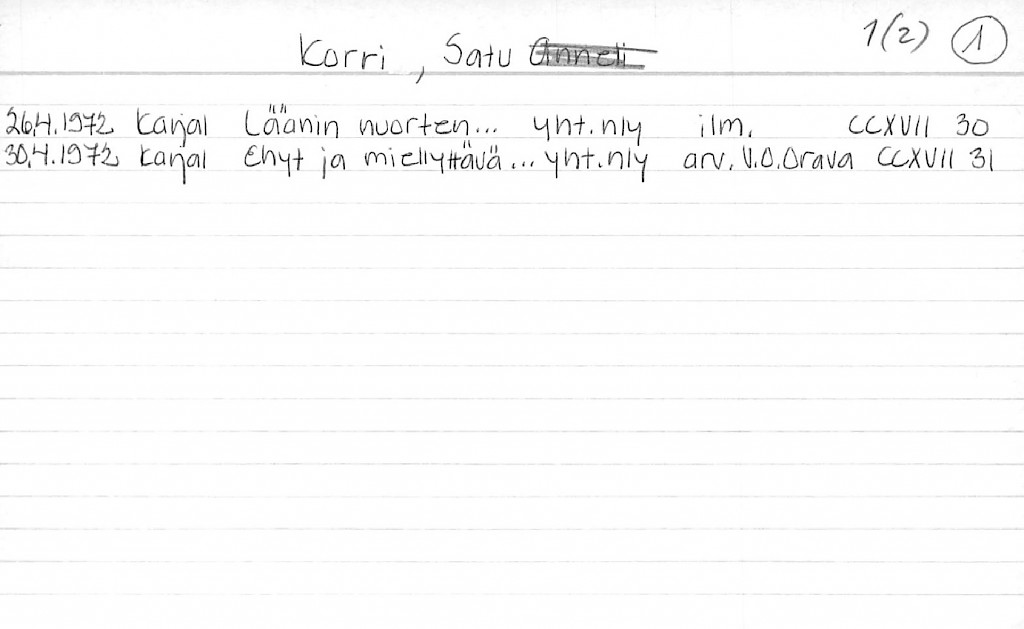 1(2) 1
Korri, Satu Anneli
26.4.1972 Karjal Läänin nuorten... yht.nly ilm. CCXVII 30
30.4.1972 Karjal Ehyt ja miellyttävä... yht.nly arv. V.O.Orava CCXVII 31